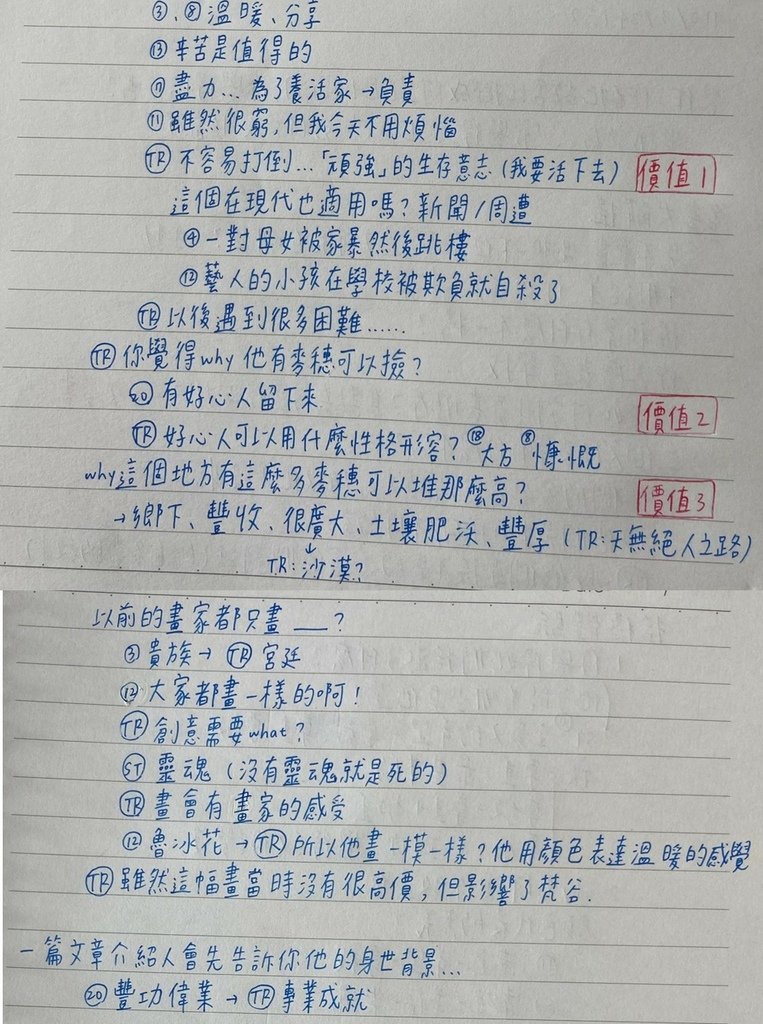 ③、⑧溫暖、分享
⑬辛苦是值得的
⑰盡力...為了養活家→負責
⑪雖然很窮,但我今天不用煩惱
TR 不容易打倒...「頑強」的生存意志(我要活下去) 價值1
這個在現代也適用嗎?新聞/周遭
④一對母女被家暴然後跳樓
⑫藝人的小孩在學校被欺負就自殺了
TR 以後遇到很多困難......
TR 你覺得why他有麥穗可以撿?
⑳有好心人留下來
TR 好心人可以用什麼性格形容?⑱大方 ⑧慷慨 價值2
why這個地方有這麼多麥穗可以堆那麼高? 價值3
→鄉下、豐收、很廣大、土壤肥沃、豐厚(TR:天無絕人之路)
↓
TR:沙漠?
以前的畫家都只畫__?
③貴族→TR 宮廷
⑫大家都畫一樣的啊!
TR 創意需要what?
ST 靈魂(沒有靈魂就是死的)
TR 畫會有畫家的感受
⑫魯冰花→TR 所以他畫一模一樣?他用顏色表達溫暖的感覺
TR 雖然這幅畫當時沒有很高價,但影響了梵谷.
一篇文章介紹人會先告訴你他的身世背景...
⑳豐功偉業→TR 專業成就